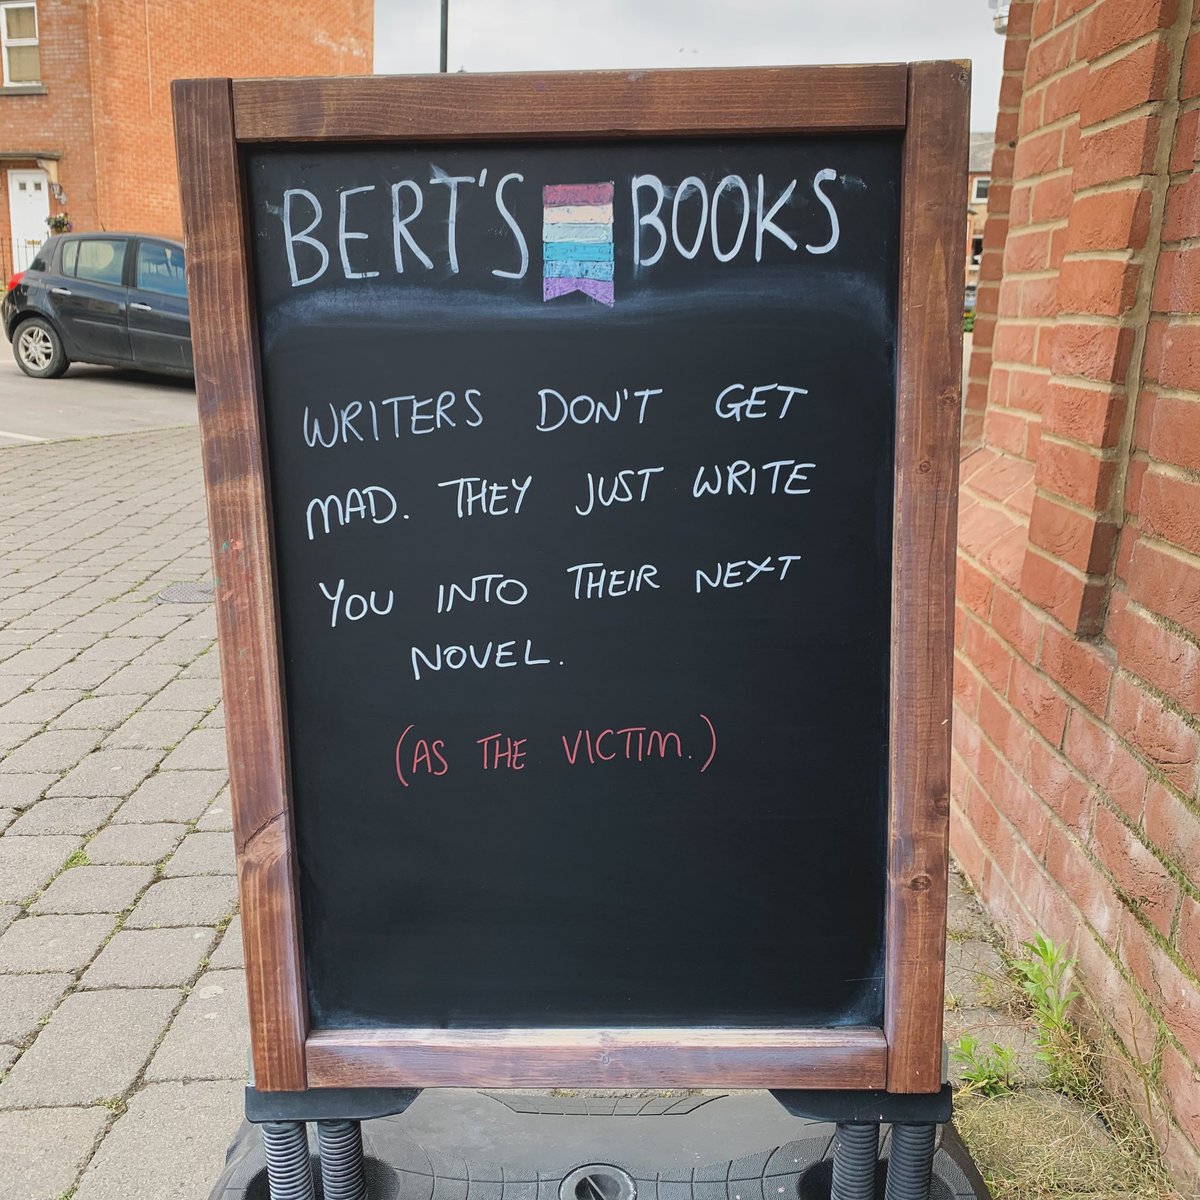 BERT'S BOOKS
WRITERS DON'T GET
MAD. THEY JUST WRITE
YOU INTO THEIR NEXT
NOVEL.
(AS THE VICTIM.)